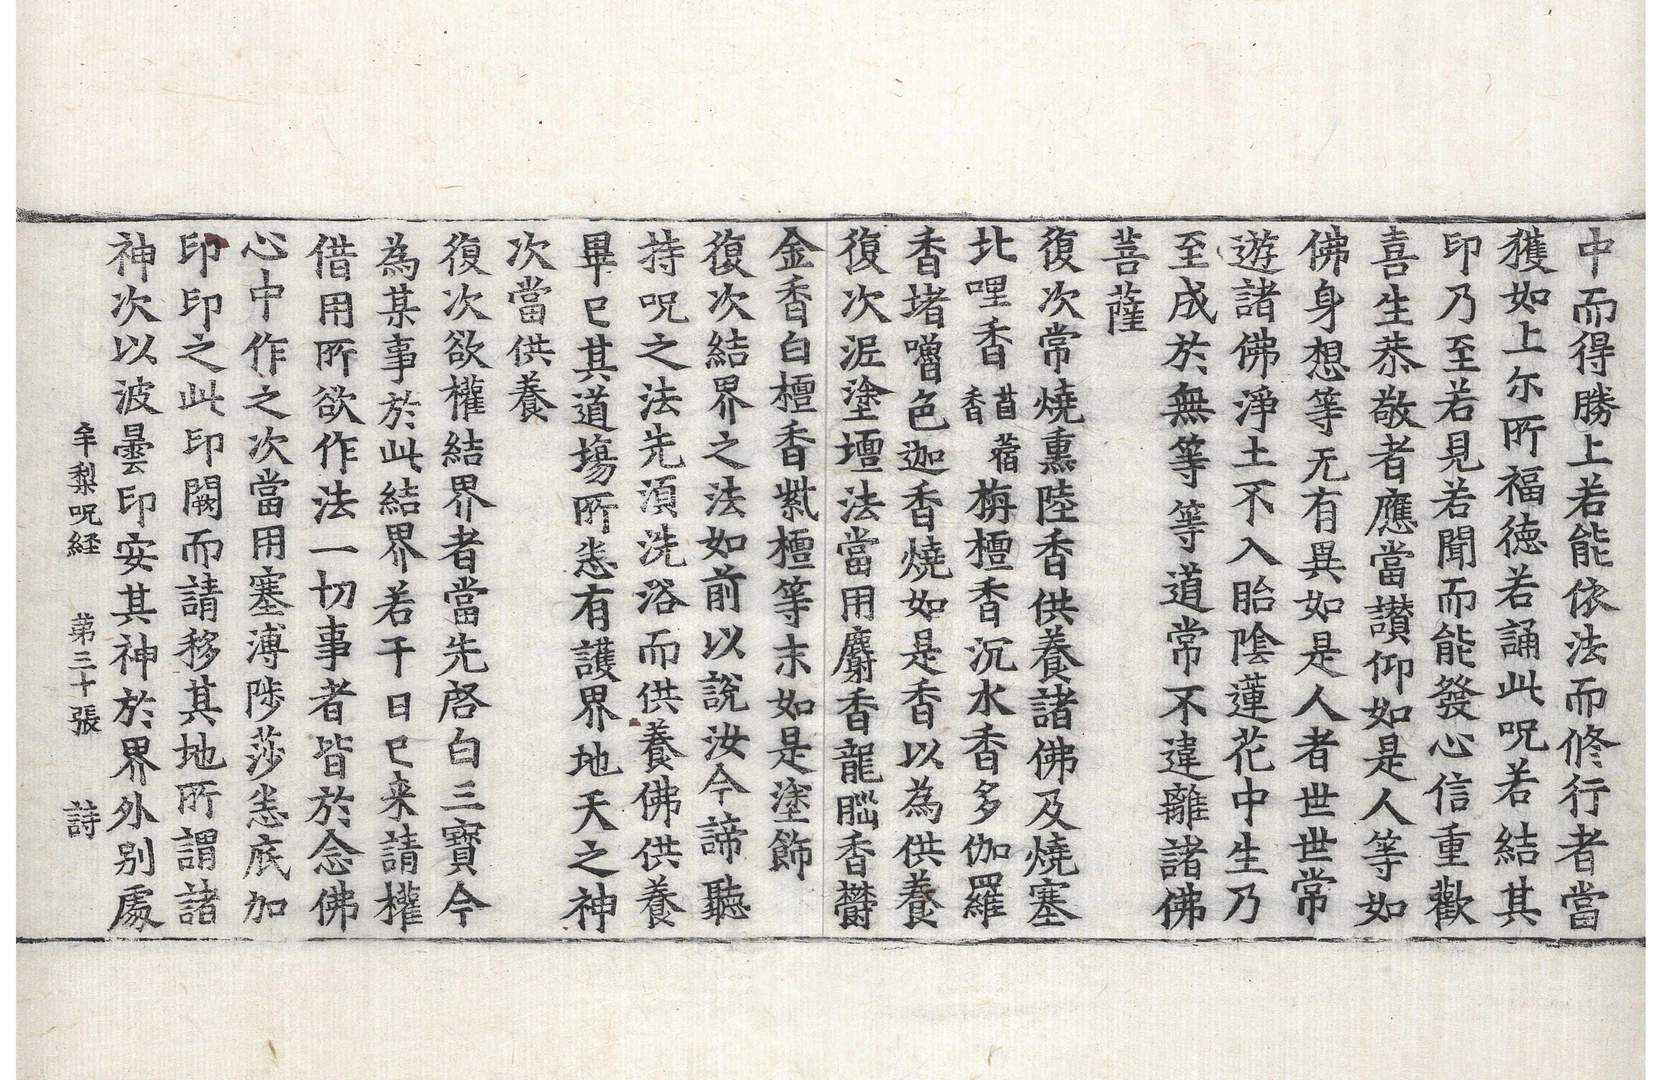 中而得勝上若能依法而修行者當
獲如上尓所福德若誦此呪若結其
印乃至若見若聞而能發心信重歡
喜生恭敬者應當讃仰如是人等如
佛身想等无有異如是人者世世常
遊諸佛淨土不入胎陰蓮花中生乃
至成於無等等道常不違離諸佛
菩薩
復次常燒熏陸香供養諸佛及燒塞
北哩香苜蓿香栴檀香沉水香多伽羅
香堵嚕色迦香燒如是香以為供養
復次泥塗壇法當用麝香龍腦香欝
金香白檀香紫檀等末如是塗飾
復次結界之法如前以說汝今諦聽
持呪之法先湏洗浴而供養佛供養
畢已其道場所悉有護界地天之神
次當供養
復次欲權結界者當先啓白三寶今
為某事於此結界若干日已来請權
借用所欲作法一切事者皆於念佛
心中作之次當用塞溥陟莎悉底加
印印之此印闕而請移其地所謂諸
神次以波曇印安其神於界外別處
牟梨呪経 第三十張 詩